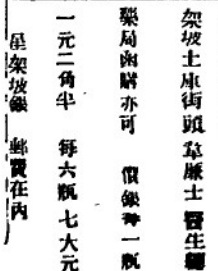 架坡土庫街頭韋廉士醫生總
藥局函購亦可 價銀每一瓶
一元二角半 每六瓶七大元
星架坡銀 郵費在內